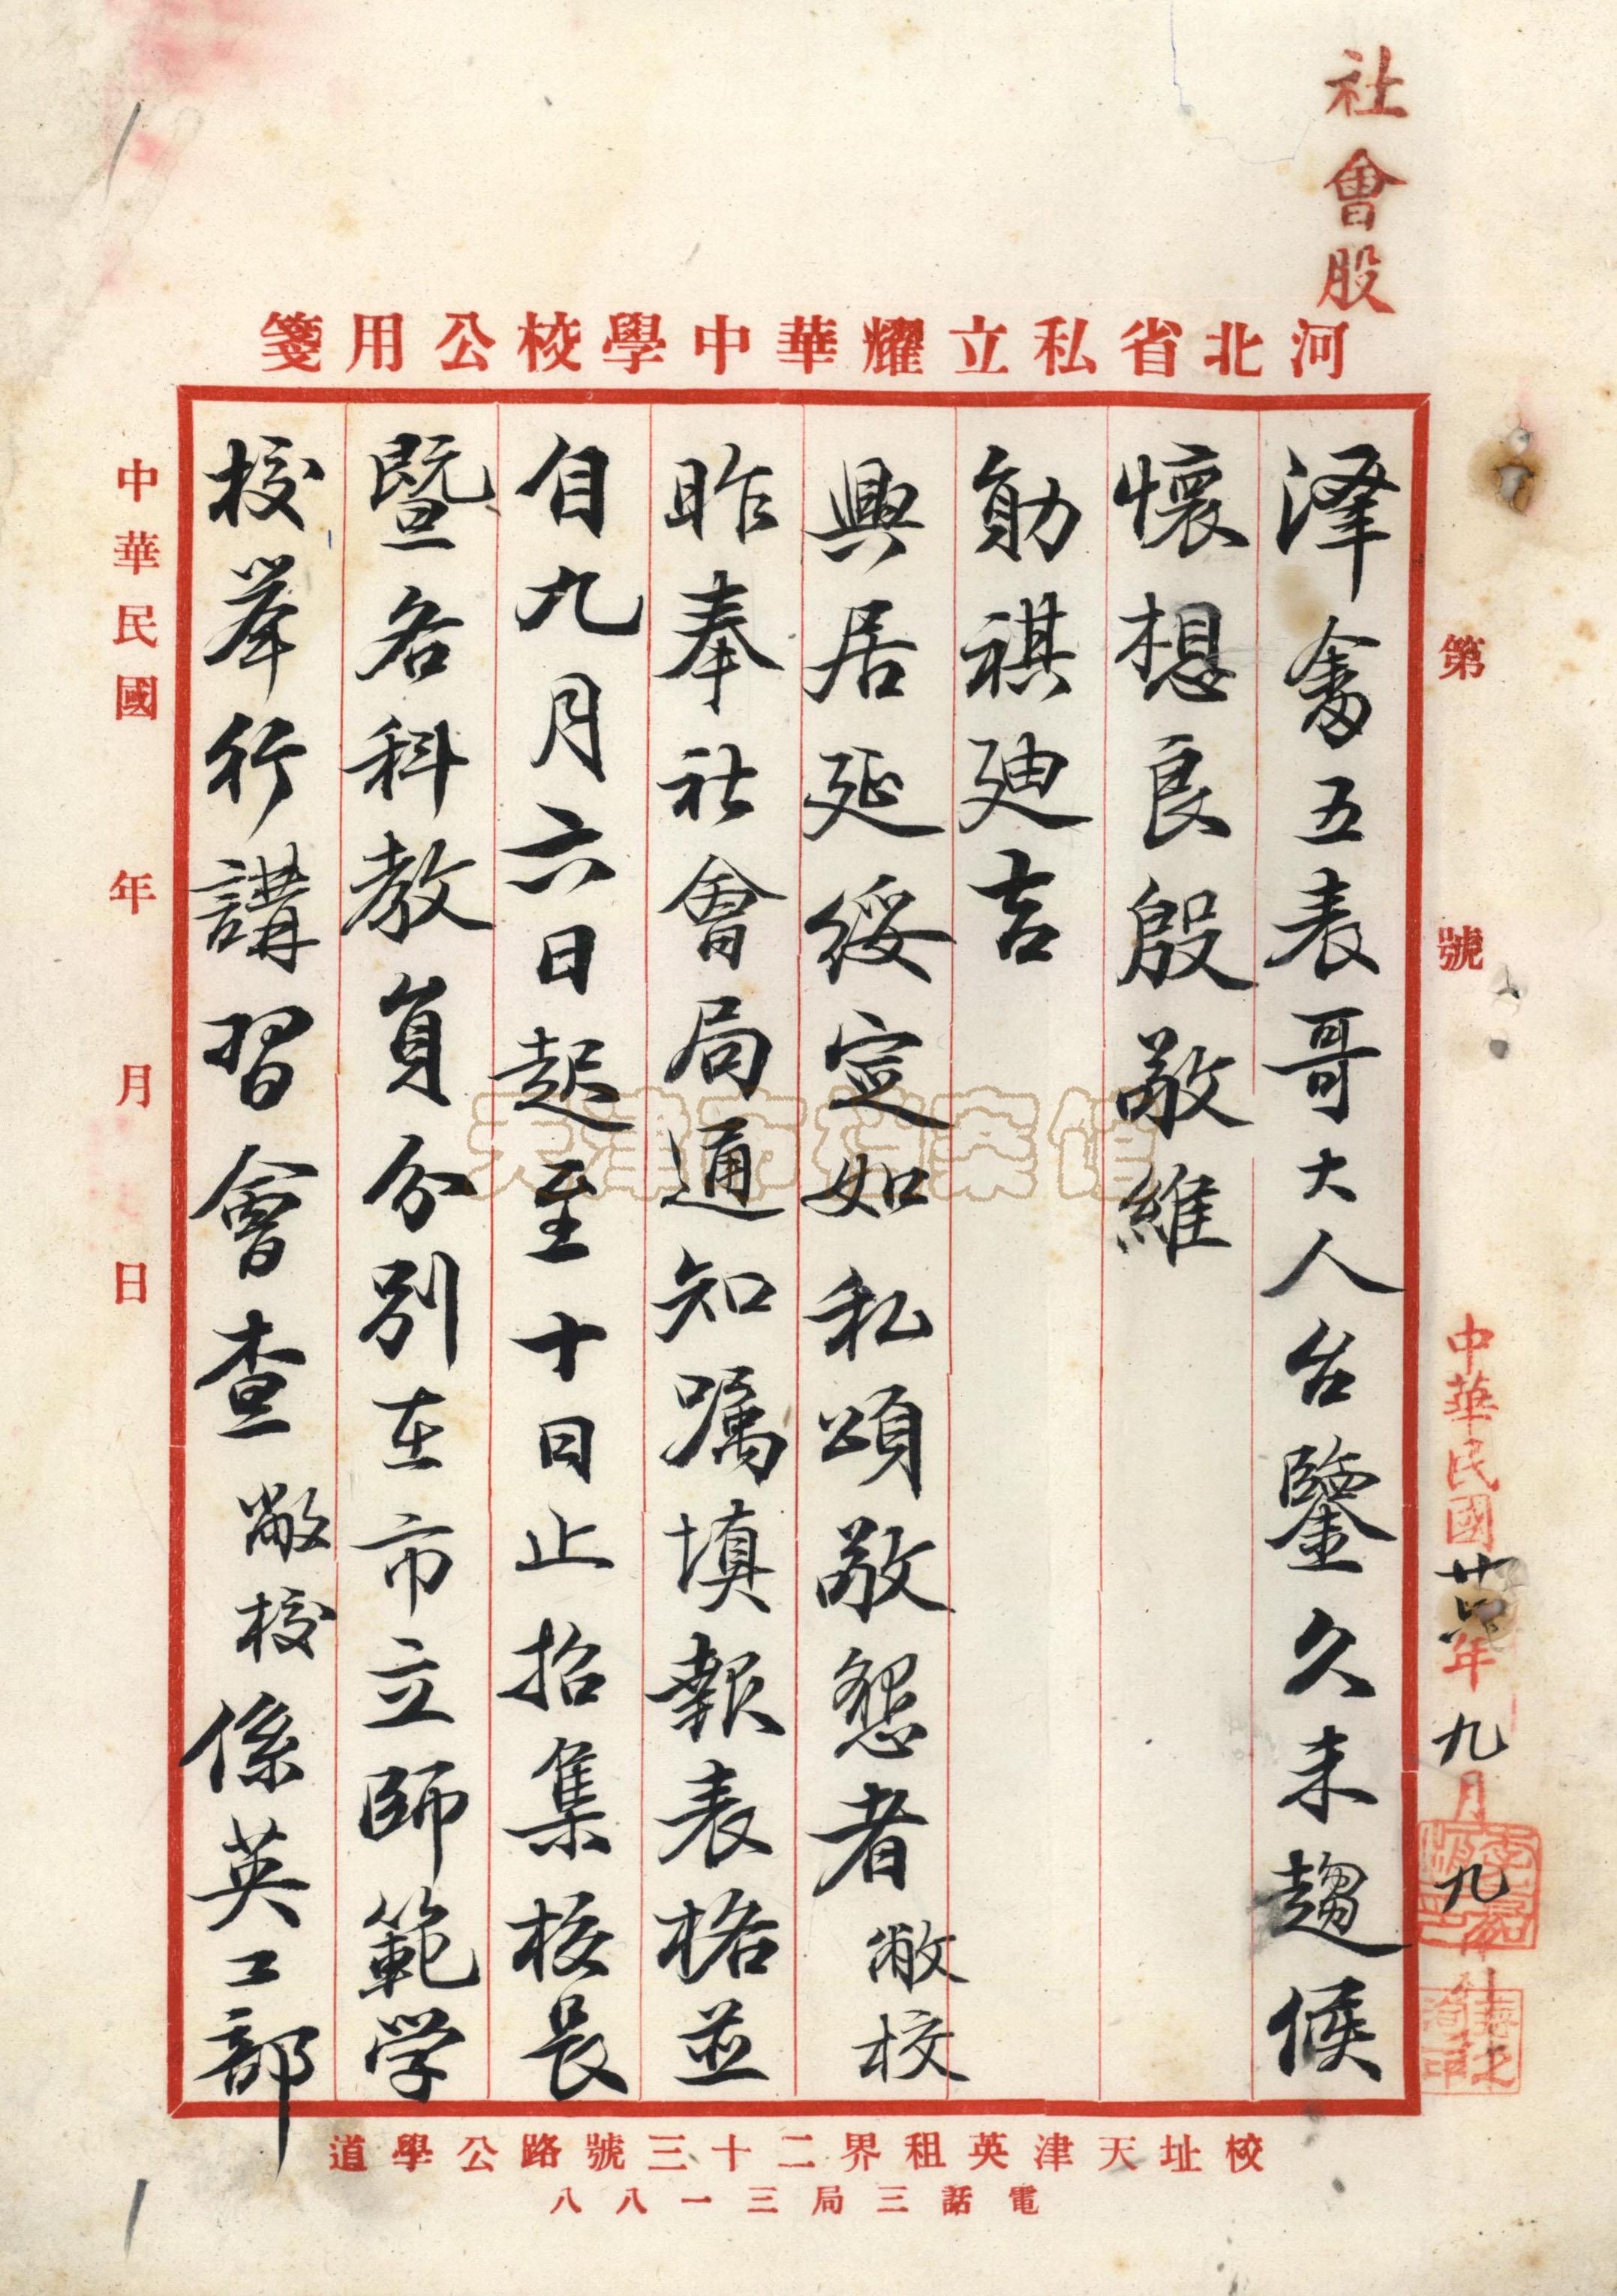 社會股
河北省私立耀華中學校公用箋
第 號
中華民國廿八年九月九日
澤畬五表哥大人台鑒久未趨候
懷想良殷敬維
勛祺迪吉
興居延綏定如私頌敬懇者敝校
昨奉社會局通知囑填報表格並
自九月六日起至十日止招集校長
暨各科教員分別在市立師範学
校举行講習會查敝校係英工部
中華民國 年 月 日
校址天津英租界二十三號路公學道
電話三局三一八八
天津市档案馆